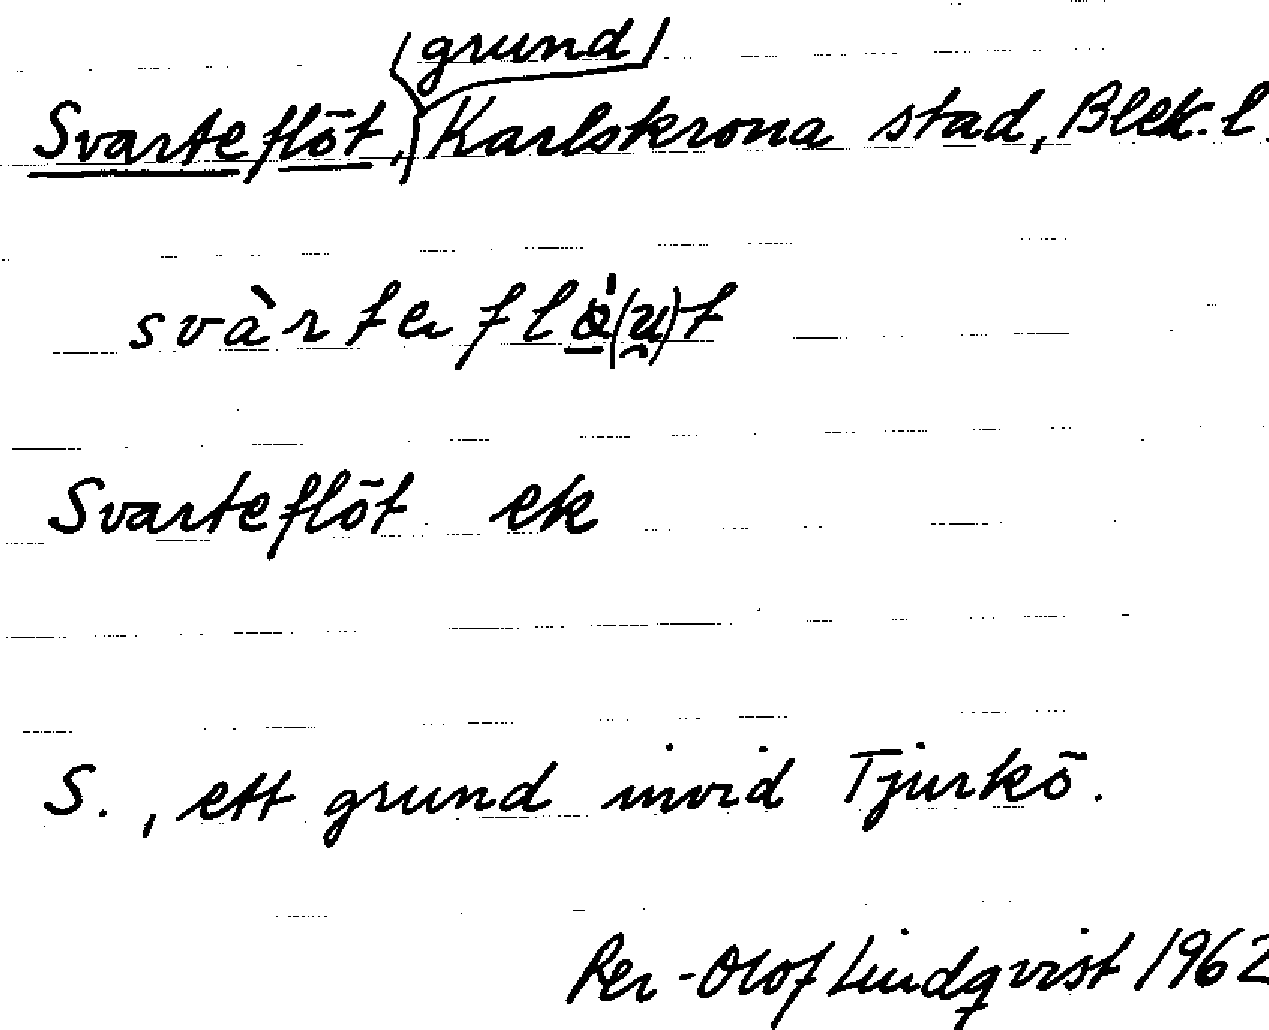 (grund)
Svarteflöt, Karlskrona stad, Blek. l.
svàrteflö̀(u)t
Svarteflöt ek
S., ett grund invid Tjurkö.
Per-Olof Lindqvist 1962